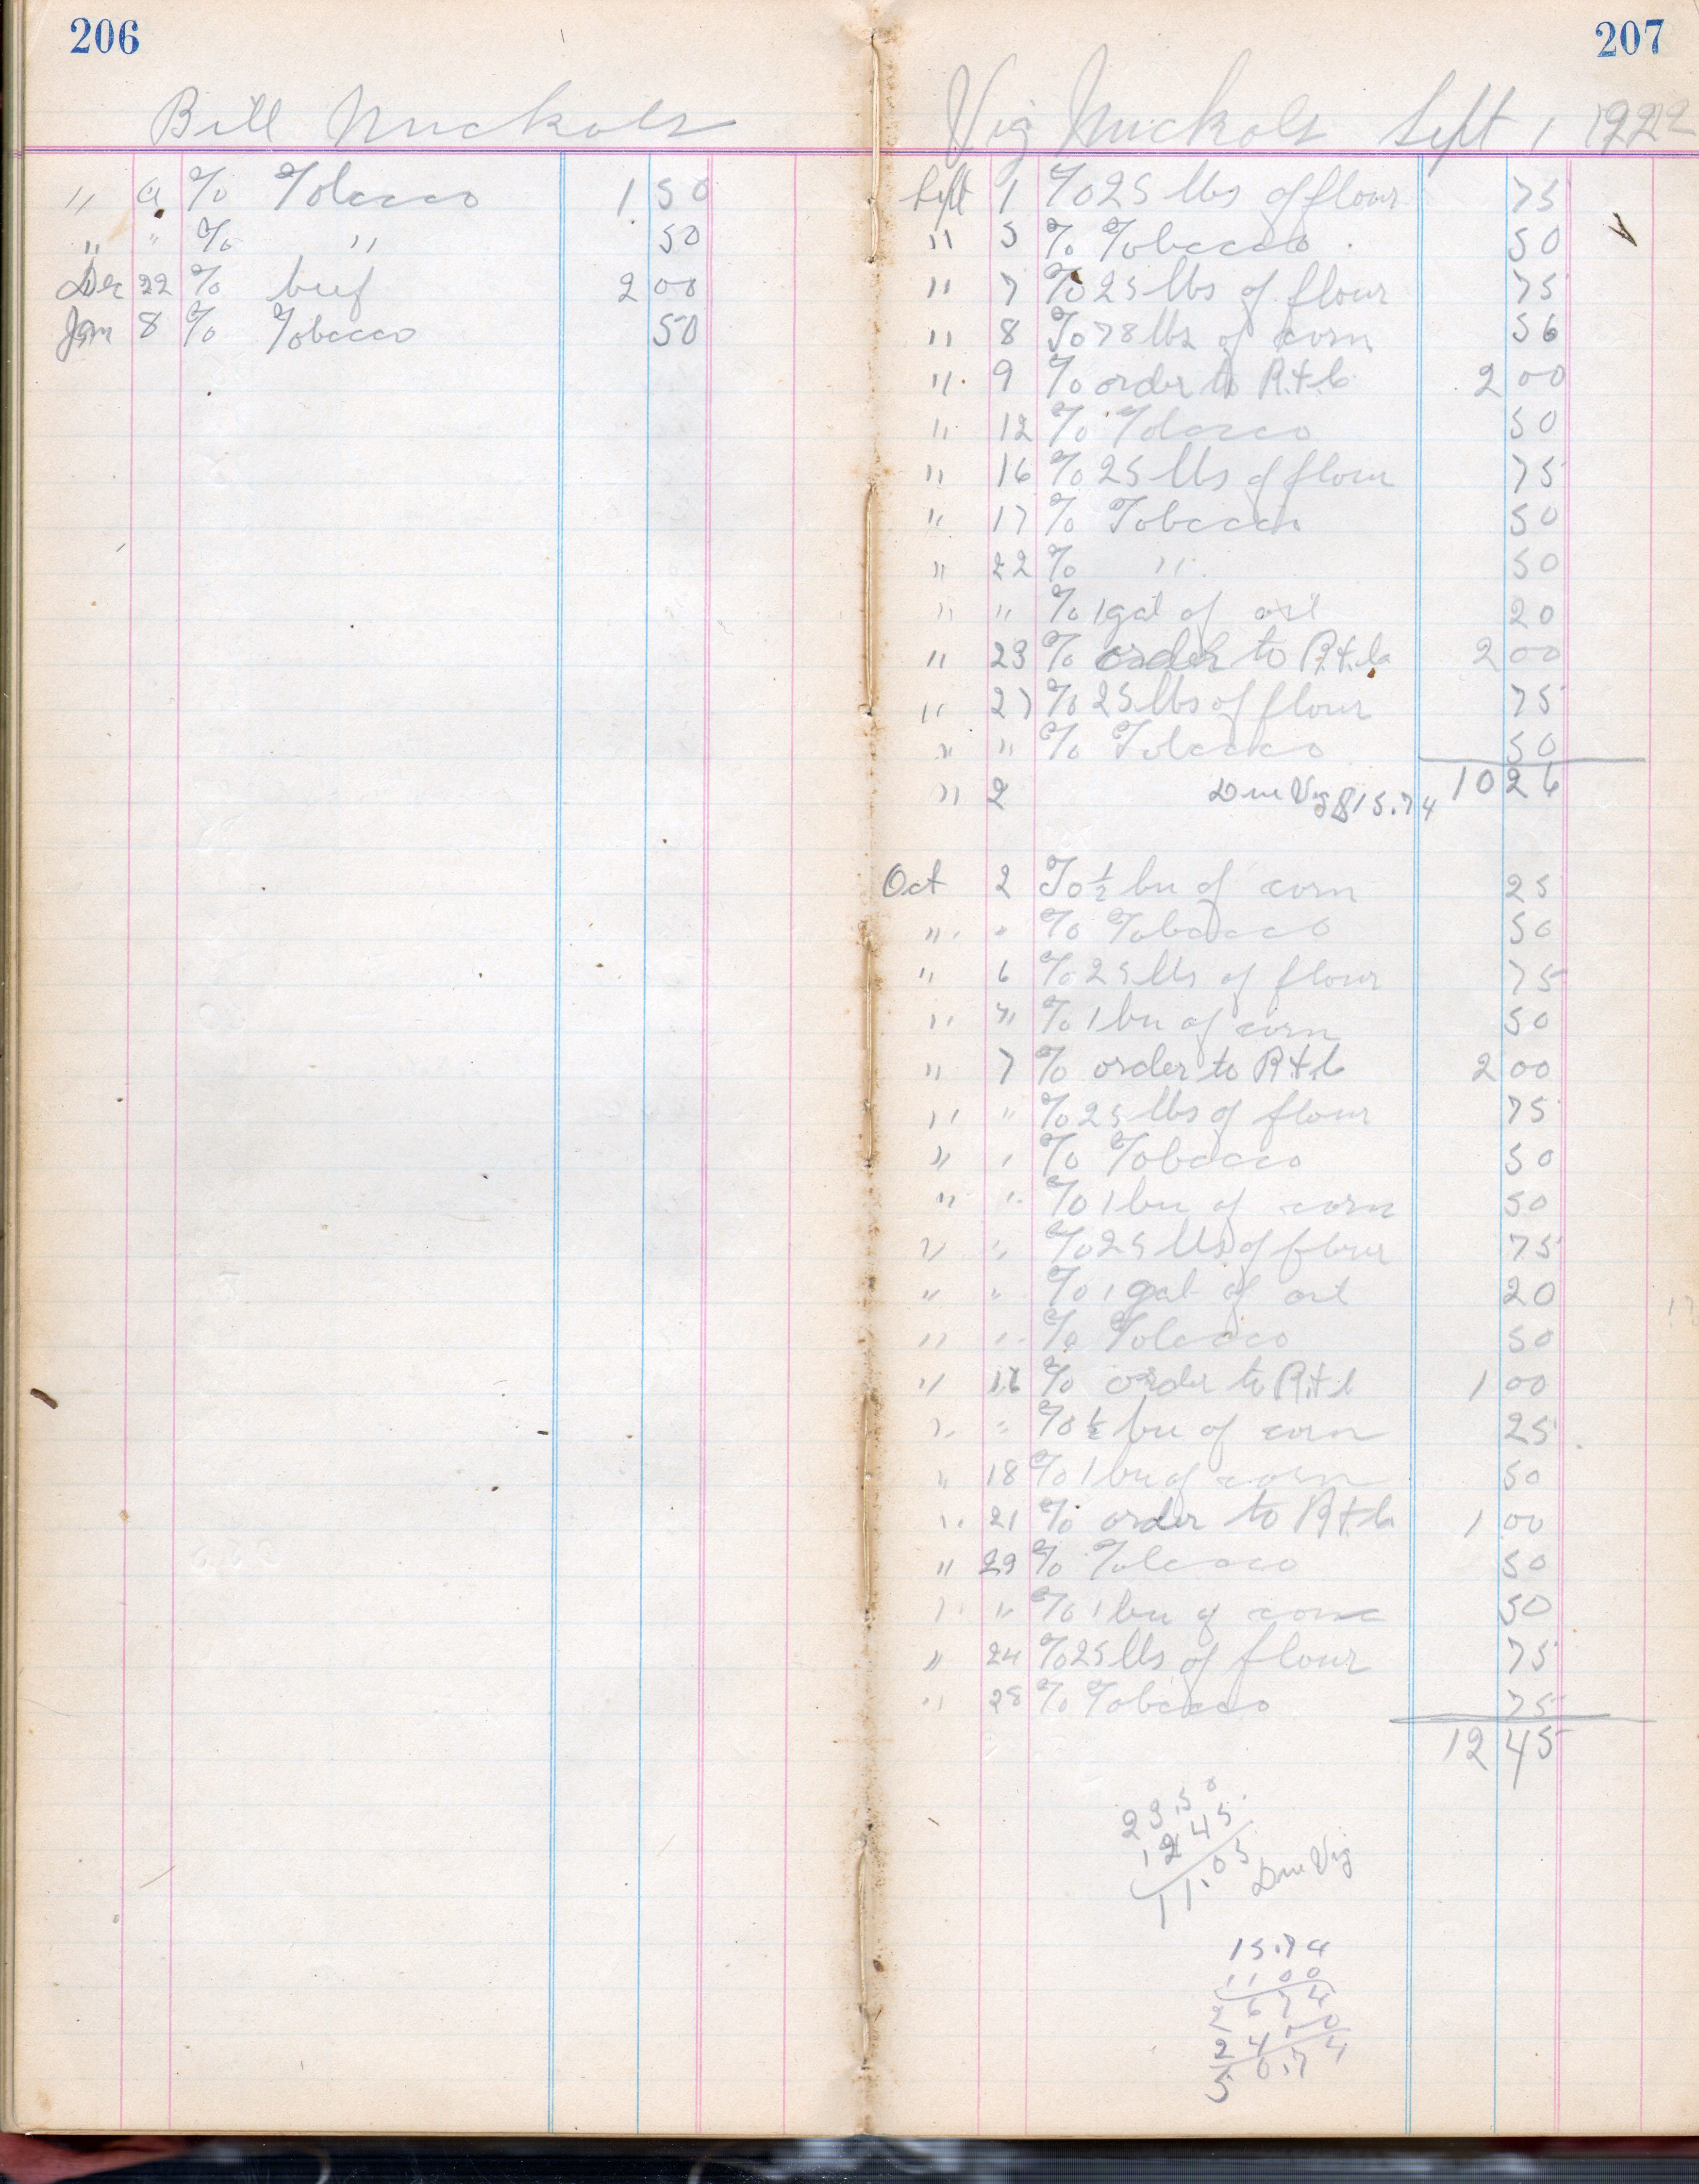 206
Bill Nuckols
" 9 To Tobacco 1 50
" " To " 50
Dec 22 To beef 2 00
Jan 8 To Tobacco 50
207
Vig Nuckols Sept 1 1922
Sept 1 To 25 lbs of flour 75
" 5 To Tobacco 50
" 7 To 25 lbs of flour 75
" 8 To 78 lbs of corn 56
" 9 To order to R.+b 2 00
" 12 To Tobacco 50
" 16 To 25 lbs of flour 75
" 17 To Tobacco 50
" 22 To " 50
" " To 1 gal of oil 20
" 23 To order to R.+.b 2 00
" 27 To 25 lbs of flour 75
" " To Tobacco 50
" 2 Due Vig $15.74 10 26
Oct 2 To 1/2 bu of corn 25
" " To Tobacco 50
" 6 To 25 lbs of flour 75
" " To 1 bu of corn 50
" 7 To order to R+b 2 00
" " To 25 lbs of flour 75
" " To Tobacco 50
" " To 1 bu of corn 50
" " To 25 lbs of flour 75
" " To 1 gal of oil 20
" " To Tobacco 50
" 16 To order to R+b 1 00
" " To 1/2 bu of corn 25
" 18 To 1 bu of corn 50
" 21 To order to R+b 1 00
" 23 To Tobacco 50
" " To 1 bu of corn 50
" 24 To 25 lbs of flour 75
" 28 To Tobacco 75
12 45
23.50
12 45
11.05 Due Vig
15.74
11 00
26 74
24 00
50.74